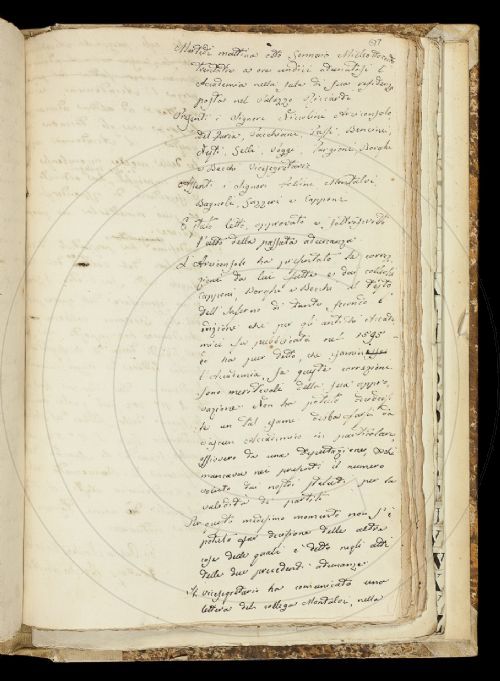 97
Martedì mattina otto Gennaro Milleottocento
trentatre a ore undici adunatasi l'
Accademia nella sala di sua residenza
posta nel Palazzo Riccardi
Presenti i Signori Niccolini Arciconsolo
Del Furia, Zannoni, Bencini,
Nesti, Sella, Poggi, Targioni, Borghi
e Becchi Vicesegretario
Assenti i Signori Felice Montalvi
Bagnoli, Gazzeri e Capponi
È stato letto, approvato e sottoscritto
l'atto della passata adunanza
L'Arciconsolo ha presentato le correzi
oni da lui fatte e dai colleghi
Capponi, Borghi e Becchi al Testo
dell'Inferno di Dante secondo l'
edizione che per gli antichi Accade
mici fu pubblicata nel 1595
e ha pur detto che esamini
l'Accademia, se queste correzioni
sono meritevoli della sua appro,
vazione. Non ha potuto
un tal esame da
ciascun Accademico in particolare,
ossivvero da una Deputazione,
mancava nei presenti il numero
voluto dai nostri statuti per la
validità de' partiti
Per questo medesimo momento non s'è
potuto far decisione delle altre
cose delle quali è detto negli atti
delle due precedenti adunanze
Il vicesegretario ha comunicato una
lettera del collega Montalvi, nella